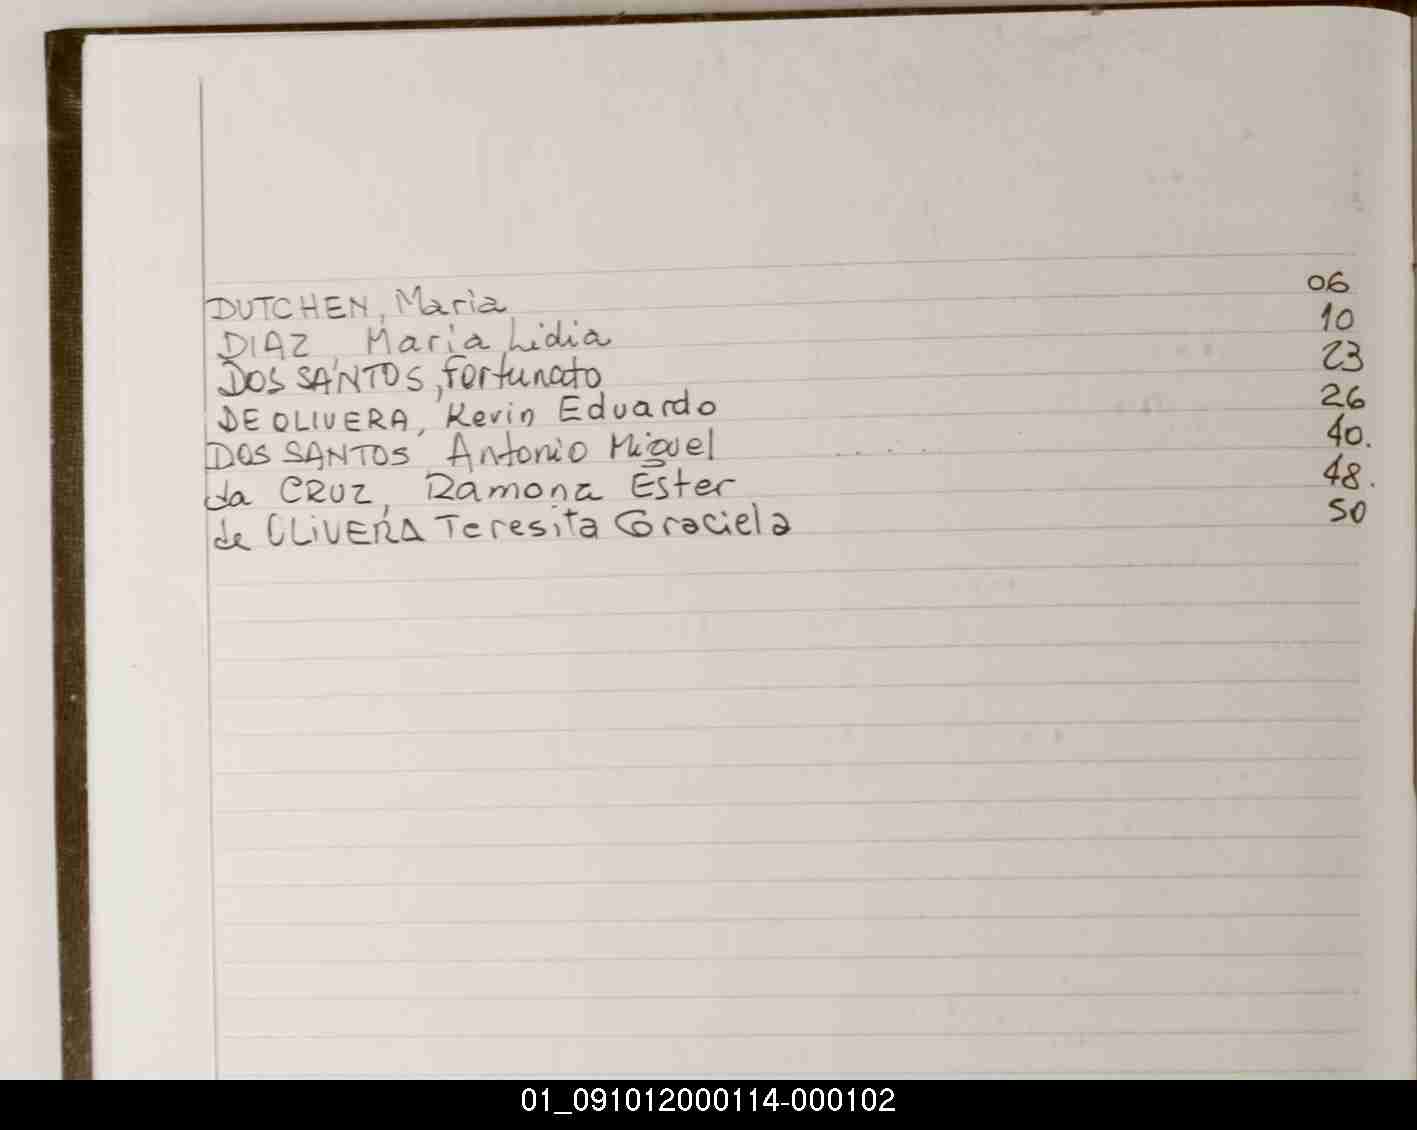 DUTCHEN, Maria 06
DIAZ Maria Lidia 10
DOS SANTOS, Fortunato 23
DE OLIVERA, Kevin Eduardo 26
DOS SANTOS Antonio Miguel ..... 40.
da CRUZ, Ramona Ester 48.
de OLiVERA Teresita Graciela 50
01_091012000114-000102